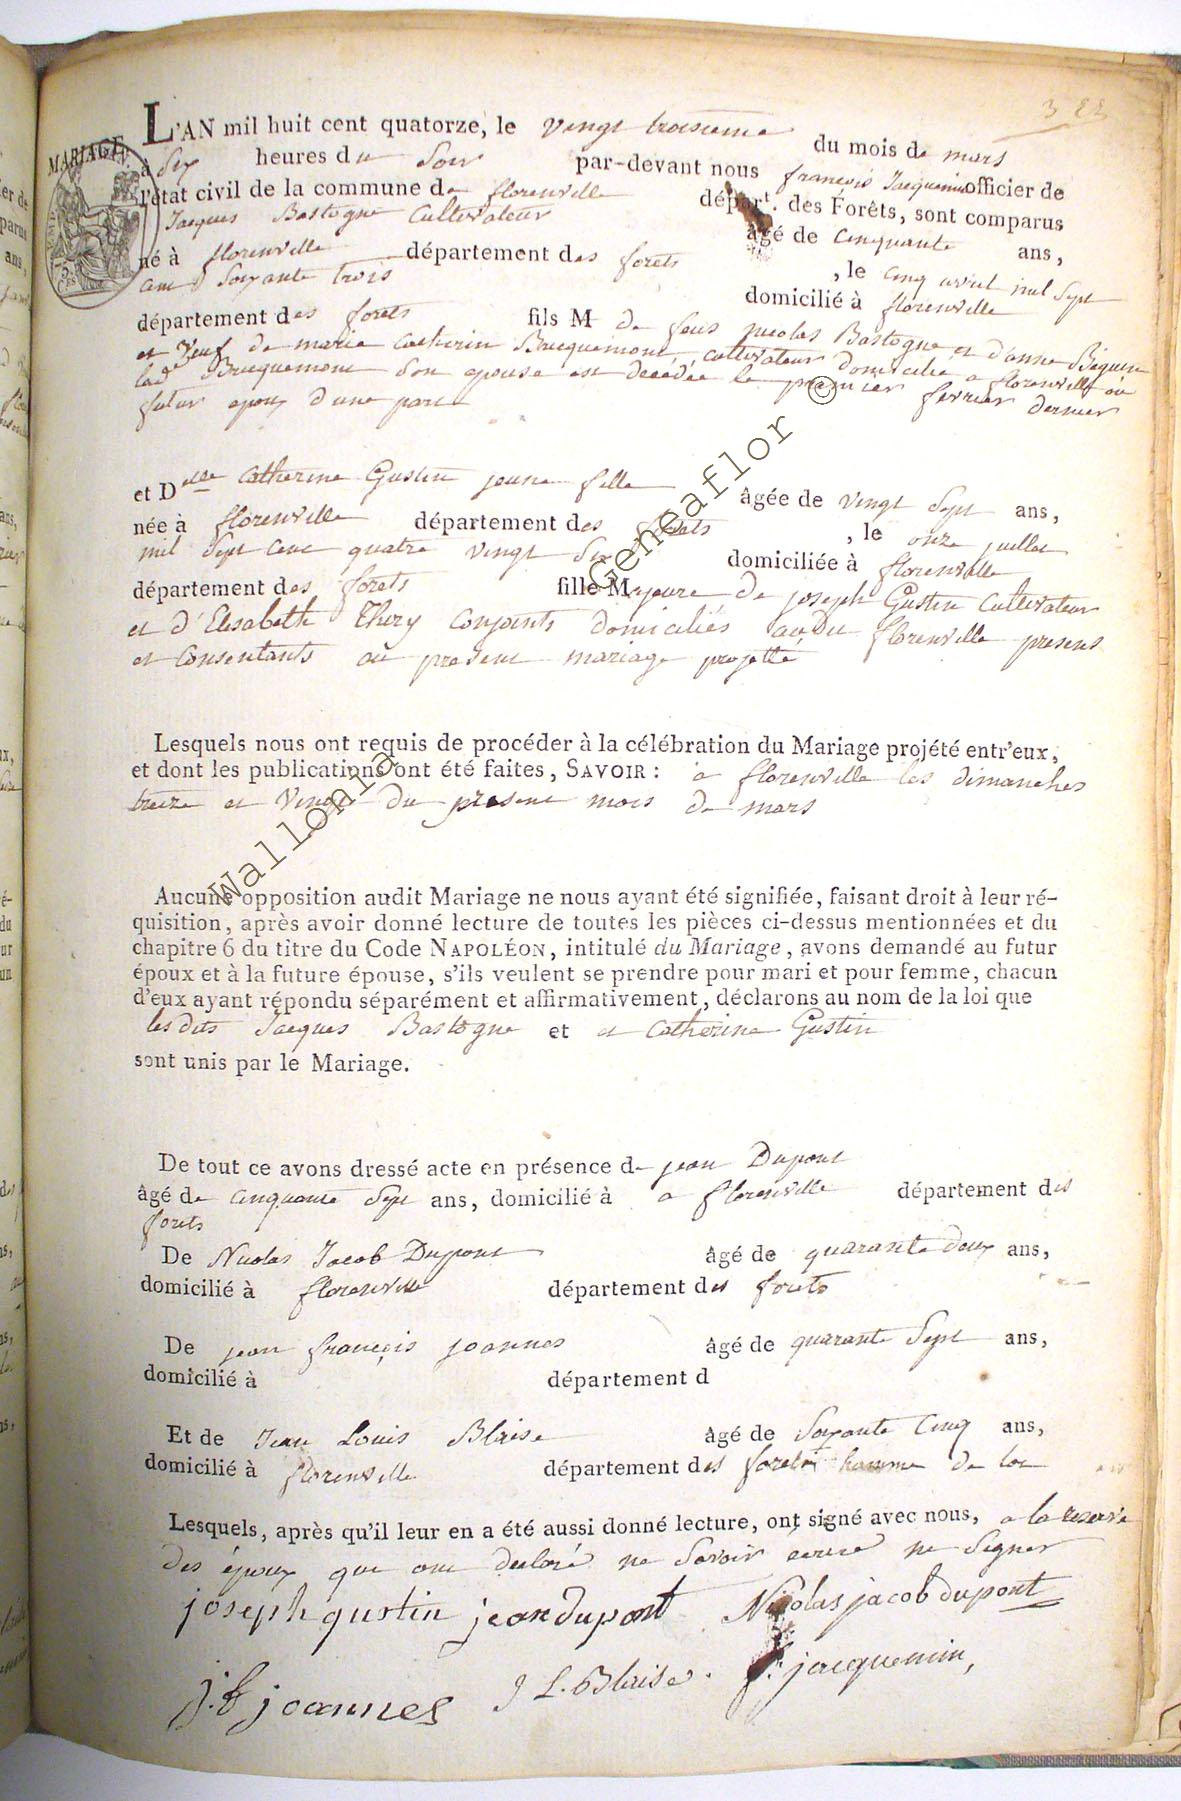 3 22
MARIAGE
L'AN mil huit cent quatorze, le vingt troisieme du mois de mars
à Six heures du Soir par-devant nous françois Jacquemin officier de
l'état civil de la commune de florenville départ. des Forêts, sont comparus
Jacques Bastogne Cultivateur âgé de cinquante ans,
né à florenville département des forets, le cinq avril mil Sept
cent Soixante trois domicilié à florenville
département des forets fils M de feus nicolas Bastogne et d'anne
et Veuf de marie Catherin Bucquemont, cultivateur domicilié a florenville ou
lade Bucquemont Son epouse est décédée le premier fevrier dernier
futur epoux d'une part
et Delle Catherine Gustin jeune fille âgée de vingt Sept ans,
née à florenville département des forets, le onze juillet
mil Sept cent quatre vingt Six domiciliée à florenville
département des forets fille Majeure de joseph Gustin Cultivateur
et d'Elisabeth Thiry conjoints domiciliés audit florenville presens
et Consentants au present mariage projetté
Lesquels nous ont requis de procéder à la célébration du Mariage projété entr'eux,
et dont les publications ont été faites, SAVOIR : a florenville les dimanches
treize et Vingt du present mois de mars
Aucune opposition audit Mariage ne nous ayant été signifiée, faisant droit à leur ré-
quisition, après avoir donné lecture de toutes les pièces ci-dessus mentionnées et du
chapitre 6 du titre du Code NAPOLÉON, intitulé du Mariage, avons demandé au futur
époux et à la future épouse, s'ils veulent se prendre pour mari et pour femme, chacun
d'eux ayant répondu séparément et affirmativement, déclarons au nom de la loi que
lesdits Jacques Bastogne et et Catherine Gustin
sont unis par le Mariage.
De tout ce avons dressé acte en présence de jean Dupont
âgé de cinquante Sept ans, domicilié à a florenville département des
forets
De Nicolas Jacob Dupont âgé de quarante deux ans,
domicilié à florenville département des forets
De jean françois joannes âgé de quarante Sept ans,
domicilié à département d
Et de Jean Louis Blaise âgé de Soixante Cinq ans,
domicilié à florenville département des forets homme de loi
Lesquels, après qu'il leur en a été aussi donné lecture, ont signé avec nous, a la reserve
des époux qui ont declaré ne Savoir écrire ne Signer
joseph gustin jean dupont Nicolas jacob dupont
j. f joannes J L. Blaise. f. jacquemin,
Wallonia Geneaflor ©